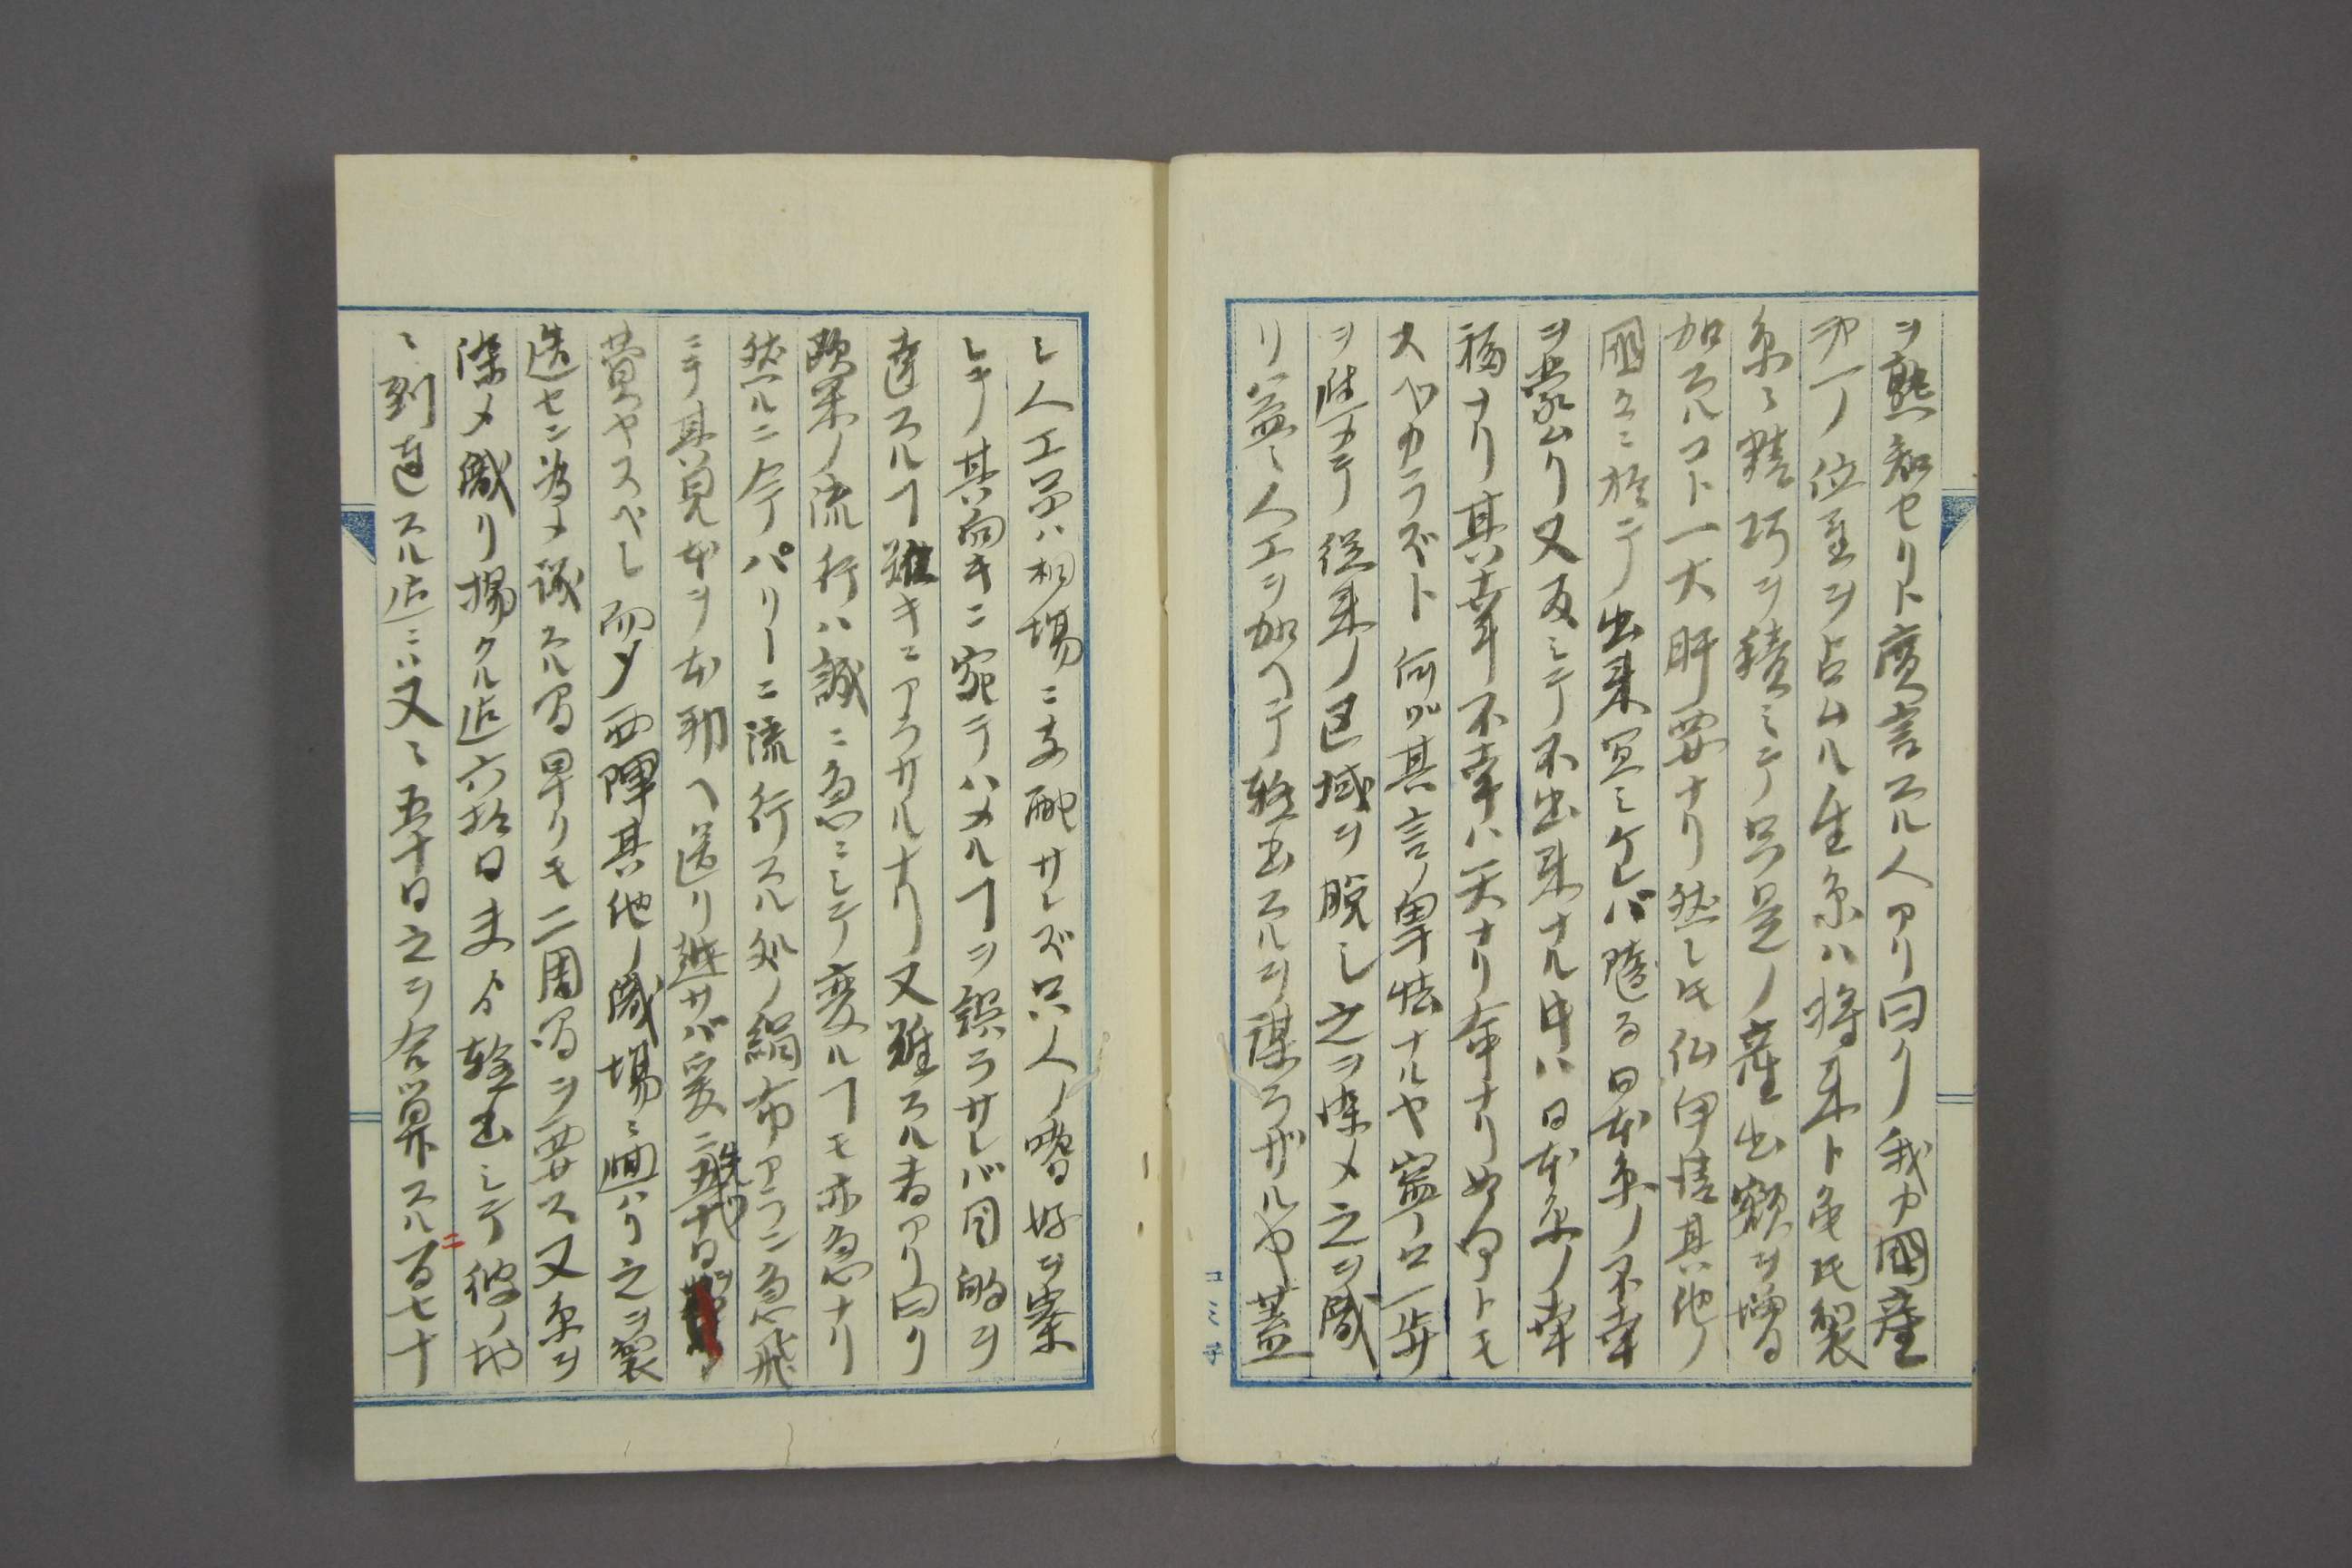 ヲ熟知セリト廣言スル人アリ曰ク我カ國産
第一ノ位置ヲ占ムル生糸ハ将来ト雖𪜈製
糸ニ精巧ヲ積ミテ只是ノ産出額ヲ増
加スルコト一大肝要ナリ然レ𪜈仏伊清其他ノ
国々ニ於テ出来宜シケレバ隨テ日本糸ノ不幸
ヲ蒙ムリ又反シテ不出来ナル時ハ日本糸ノ幸
福ナリ其幸不幸ハ天ナリ命ナリ如何トモ
スベカラズト何ゾ其言ノ卑怯ナルヤ寧ロ一歩
ヲ進メテ従来ノ区域ヲ脱シ之ヲ染メ之ヲ織
リ益々人工ヲ加ヘテ輸出スルヲ謀ラザルヤ蓋
シ人工品ハ相場ニ支配サレズ只人ノ嗜好ヲ察
シテ其向キニ宛テハメルヿヲ誤ラサレバ目的ヲ
達スルヿ難キニアラサルナリ又難スル者アリ曰ク
欧米ノ流行ハ誠ニ急ニシテ変ルヿモ亦急ナリ
然ルニ今パリーニ流行スル処ノ絹布アラン急飛
ニテ其見本ヲ本邦ヘ送リ越サバ爰ニ五十日ヲ
費ヤスベシ而メ西陣其他ノ織場ニ廻ハリ之ヲ製
造セン為メ談スル間早クモ二周間ヲ要ス又糸ヲ
染メ織リ揚クル迄六拾日夫ヨリ輸出シテ彼ノ地
ニ到達スル迄ニハ又々五十日之ヲ合算スル百七十
コミ